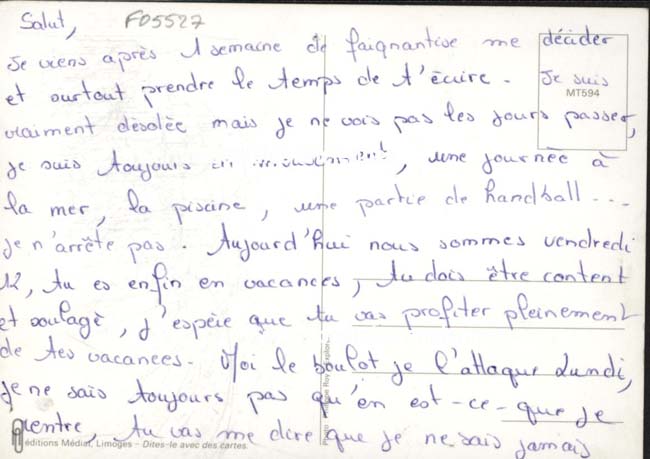 Salut, F05527
Je viens après 1 semaine de faignantise me décider
et surtout prendre le temps de t'écrire. Je suis
MT594
vraiment désolée mais je ne vois pas les jours passer,
je suis toujours en mouvement, une journée à
la mer, la piscine, une partie de handball...
je n'arrête pas. Aujourd'hui nous sommes vendredi
12, tu es enfin en vacances, tu dois être content
et soulagé, j'espère que tu vas profiter pleinement
de tes vacances. Moi le boulot je l'attaque Lundi,
je ne sais toujours pas qu'en est-ce-que je
rentre, tu vas me dire que je ne sais jamais
éditions Médiat, Limoges - Dites-le avec des cartes.